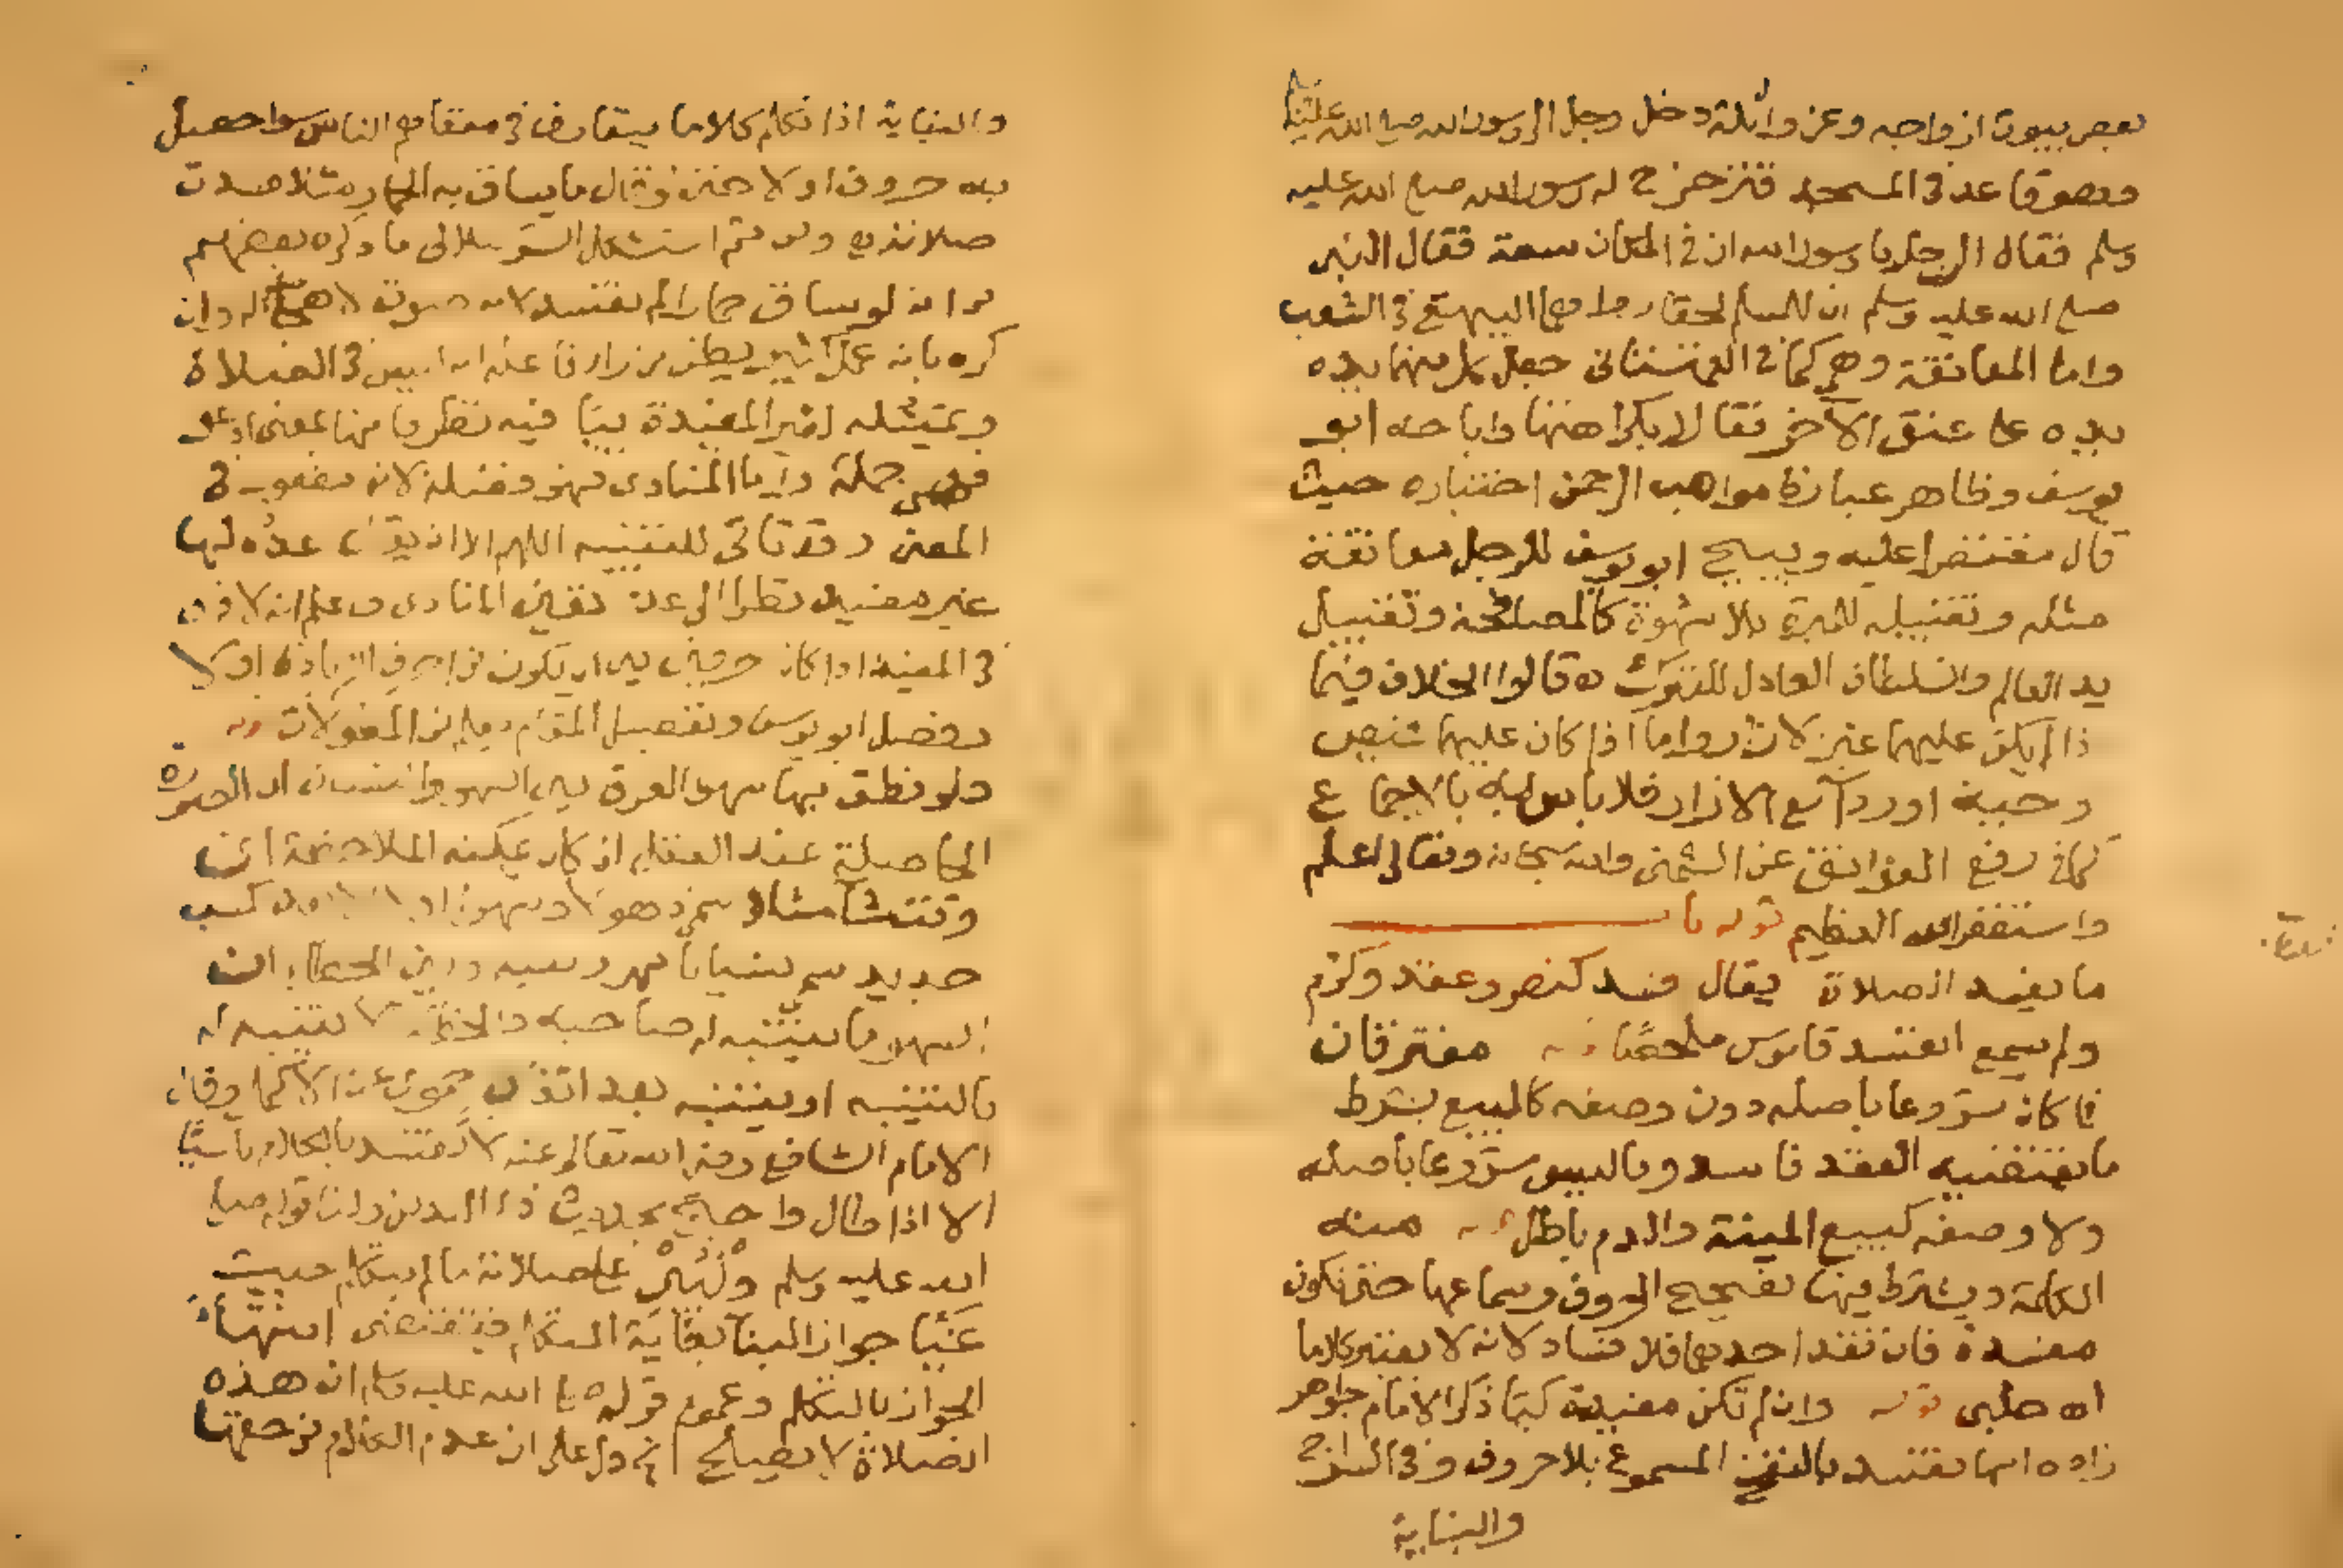 بعض بيوت ازواجه وعن واثلة دخل رجل الى رسول الله صلى الله عليه
وهو قاعد في المسجد فتزحزح له رسول الله صلى الله عليه
وسلم فقال الرجل يا رسول الله ان في المكان سعة فقال النبي
صلى الله عليه وسلم ان للمسلم لحقا رواهما البيهقي في الشعب
واما المعانقة وهي كما في القهستاني جعل كل منهما يده
يده على عنق الآخر فقالا بكراهتها واباحه ابو
يوسف وظاهر عبارة مواهب الرحمن اختياره حيث
قال مقتصرا عليه ويبيح ابو يوسف للرجل معانقة
مثله وتقبيله للمبرة بلا شهوة كالمصافحة وتقبيل
يد العالم والسلطان العادل للتبرك قالوا الخلاف فيما
ذا لم يكن عليهما غير الازار واما اذا كان عليهما قميص
وجبة او رداء مع الازار فلا باس به بالاجماع
كما في رفع العوائق عن الشمني والله سبحانه وتعالى اعلم
واستغفر الله العظيم قوله باب
ما يفسد الصلاة يقال فسد كنصر وعقد وكرم
ولم يسمع انفسد قاموس ملخصا قوله مفترقان
فما كان مشروعا باصله دون وصفه كالبيع بشرط
ما يقتضيه العقد فاسد وما ليس مشروعا باصله
ولا وصفه كبيع الميتة والدم باطل قوله
الكلمة ويشترط فيها تصحيح الحروف وسماعها حتى تكون
مفسدة فان فقد احدهما فلا فساد لانه لا يعتبر كلاما
اه حلبي قوله وان لم تكن مفيدة كيا ذكر الامام جواهر
زاده انها تفسد بالنفخ المسموع بلا حروف وفي السراج
والبناية
والبناية اذا تكلم كلاما يتعارف في متفاهم الناس سوا حصل
به حروف اولا حتى لو قال ما يساق به الحمار مثلا فسدت
صلاته ومن ثم استشكل الشرنبلالي ما ذكره بعضهم
من انه لو ساق حمارا لم تفسد لانه صوت لا هجا له وان
كره بانه عمل كثير يظن من راه فاعله انه ليس في الصلاة
وتمثيله لغير المفيدة بيا فيه نظر فانها بمعنى ادعو
فهي جملة واما المنادى فهو فضلة لانه مفعول في
المعنى وقد تاتي للتنبيه اللهم الا ان يقال عده لها
غير مفيد نظرا الى عدم تعيين المنادى وعلم انه لا فرق
في المفيد اذا كان حرفين بين ان يكون من احرف الزيادة اولا
وفصل ابو يوسف وتفصيل المقام يعلم من المطولات قوله
ولو نطق بها سهوا الفرق بين السهو والنسيان ان الصورة
الحاصلة عند العقل ان كان يمكنه الملاحظة اي
وقت شاء مثلا سمي ذهولا وسهوا او لا الا بعد كسب
جديد سمي نسيانا نهر وبينه وبين الخطا ان
السهو ما يتنبه له صاحبه والخطا ما لا يتنبه له
بالتنبيه او يتنبه بعد اتعاب حموي عن الاكمل وقال
الامام الشافعي رضي الله تعالى عنه لا تفسد بالكلام ناسيا
الا اذا طال واحتج بحديث ذي اليدين ولنا قوله صلى
الله عليه وسلم وليبن على صلاته ما لم يتكلم حيث
غيا جواز البنا بغاية التكلم فيقتضي انتهاء
الجواز بالتكلم وعموم قوله صلى الله عليه وسلم ان هذه
الصلاة لا يصلح الخ دل على ان عدم الكلام من حقها